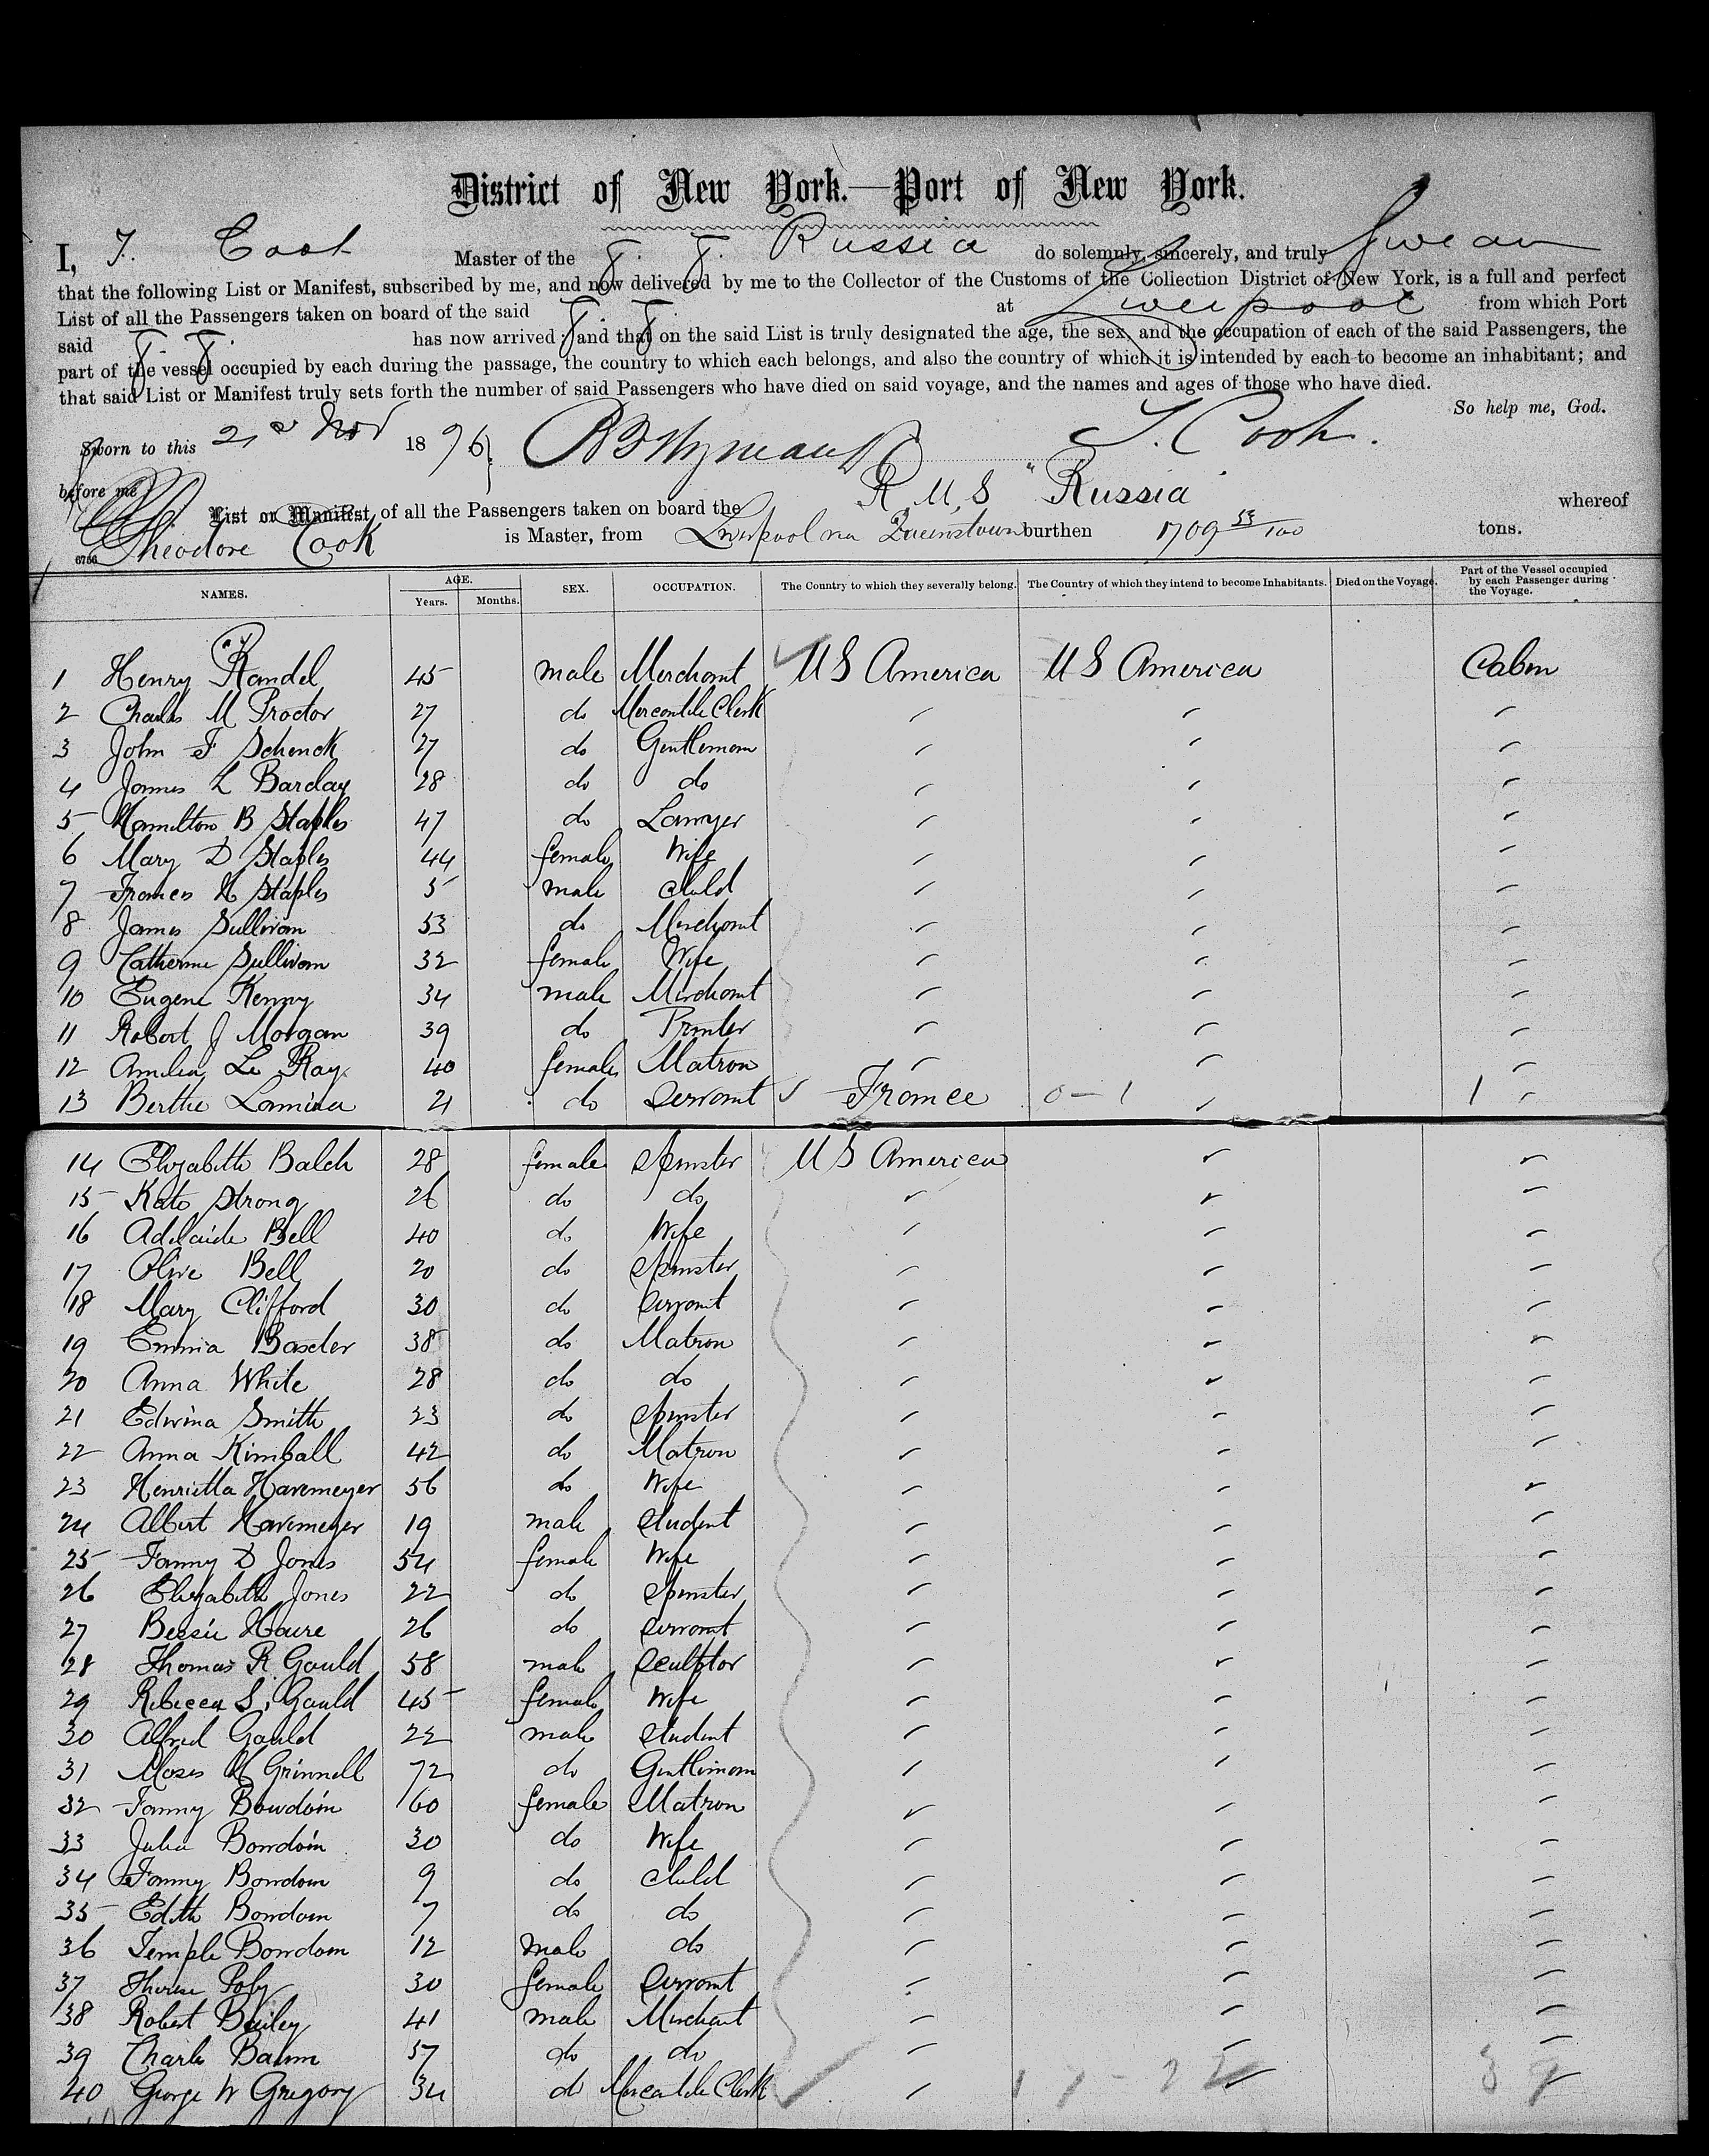 District of New York.—Port of New York.
I, T. Cook Master of the S. S. Russia do solemnly, sincerely, and truly swear
that the following List or Manifest, subscribed by me, and now delivered by me to the Collector of the Customs of the Collection District of New York, is a full and perfect
List of all the Passengers taken on board of the said S. S. at Liverpool from which Port
said S. S. has now arrived; and that on the said List is truly designated the age, the sex, and the occupation of each of the said Passengers, the
part of the vessel occupied by each during the passage, the country to which each belongs, and also the country of which it is intended by each to become an inhabitant; and
that said List or Manifest truly sets forth the number of said Passengers who have died on said voyage, and the names and ages of those who have died.
So help me, God.
Sworn to this 2 Nov 1876 T. Cook.
before me
List or Manifest of all the Passengers taken on board the R M S "Russia" whereof
Theodore Cook is Master, from Liverpool via Queenstown burthen 1709 53/100 tons.
6756
NAMES. AGE. Years. Months. SEX. OCCUPATION. The Country to which they severally belong. The Country of which they intend to become Inhabitants. Died on the Voyage. Part of the Vessel occupied by each Passenger during the Voyage.
1 Henry Randel 45 male Merchant U S America U S America Cabin
2 Charles M Proctor 27 do Mercantile Clerk
3 John F Schenck 27 do Gentleman
4 James L Barclay 28 do do
5 Hamilton B Staples 47 do Lawyer
6 Mary D Staples 44 female Wife
7 Frances H Staples 5 male child
8 James Sullivan 53 do Merchant
9 Catherine Sullivan 32 female Wife
10 Eugene Kenny 34 male Merchant
11 Robert J Morgan 39 do Printer
12 Amelia Le Ray 40 female Matron
13 Berthe 21 do Servant France 0-1 1
14 Elizabeth Balch 28 female Spinster U S America
15 Kate Strong 26 do do
16 Adelaide Bell 40 do Wife
17 Olive Bell 20 do Spinster
18 Mary Clifford 30 do Servant
19 Emma Baxter 38 do Matron
20 Anna White 28 do do
21 Edwina Smith 23 do Spinster
22 Anna Kimball 42 do Matron
23 Henrietta Havemeyer 56 do Wife
24 Albert Havemeyer 19 male Student
25 Fanny D Jones 54 female Wife
26 Elizabeth Jones 22 do Spinster
27 Bessie Hoare 26 do Servant
28 Thomas R Gould 58 male Sculptor
29 Rebecca S. Gould 45 female Wife
30 Alfred Gould 22 male Student
31 Moses H Grinnell 72 do Gentleman
32 Fanny Bowdoin 60 female Matron
33 Julia Bowdoin 30 do Wife
34 Fanny Bowdoin 9 do child
35 Edith Bowdoin 7 do do
36 Temple Bowdoin 12 male do
37 Therese Poly 30 female Servant
38 Robert Bailey 41 male Merchant
39 Charles Baum 57 do do
40 George W Gregory 34 do Mercantile Clerk 17-22 39